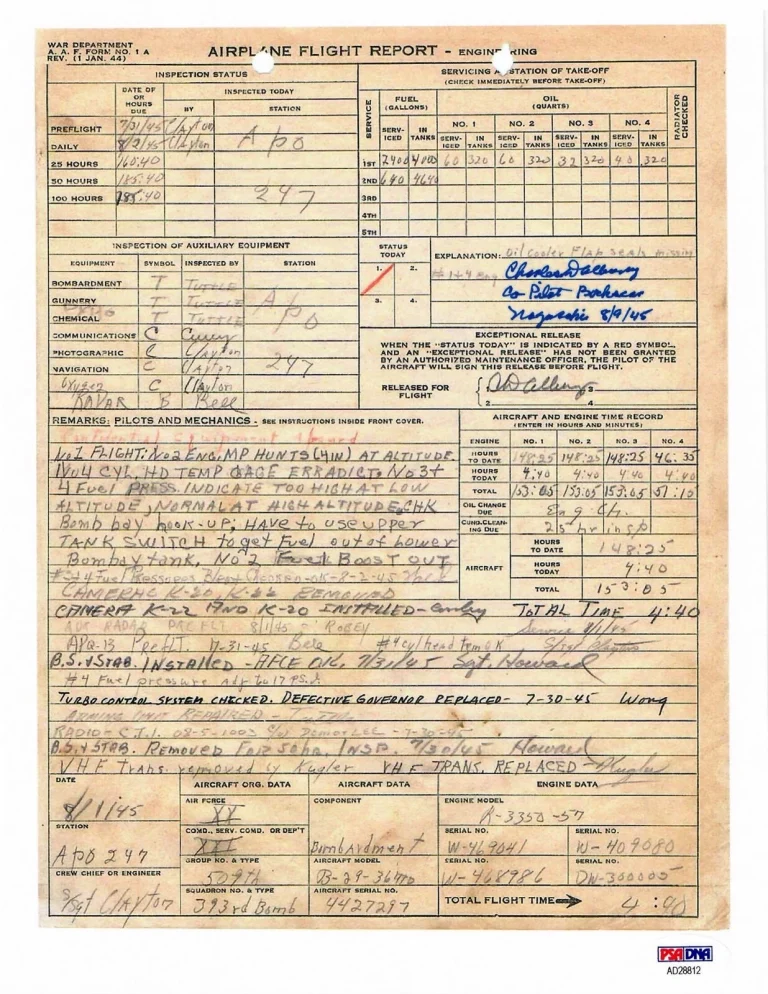 WAR DEPARTMENT
A. A. F. FORM NO. 1 A
REV. (1 JAN. 44)
AIRPLANE FLIGHT REPORT - ENGINEERING
INSPECTION STATUS
DATE OF OR HOURS DUE
INSPECTED TODAY
BY
STATION
PREFLIGHT 7/31/45 Clayton
DAILY 8/2/45 Clayton APO
25 HOURS 160:40
50 HOURS 185:40
100 HOURS 285:40 247
SERVICING AT STATION OF TAKE-OFF
(CHECK IMMEDIATELY BEFORE TAKE-OFF)
SERVICE
FUEL (GALLONS)
OIL (QUARTS)
RADIATOR CHECKED
NO. 1 NO. 2 NO. 3 NO. 4
SERV-ICED IN TANKS SERV-ICED IN TANKS SERV-ICED IN TANKS SERV-ICED IN TANKS SERV-ICED IN TANKS
1ST 2400 4000 60 320 60 320 32 320 40 320
2ND 640 4640
3RD
4TH
5TH
INSPECTION OF AUXILIARY EQUIPMENT
EQUIPMENT SYMBOL INSPECTED BY STATION
BOMBARDMENT T TUTTLE
GUNNERY T TUTTLE APO
CHEMICAL T TUTTLE
COMMUNICATIONS C
PHOTOGRAPHIC C Clayton
NAVIGATION C Clayton 247
Oxygen C Clayton
RADAR B Bell
STATUS TODAY
1. 2.
3. 4.
EXPLANATION: Oil cooler Flap seals missing
#1+4 Eng
Charles D Albury
Co Pilot Bockscar
Nagasaki 8/9/45
EXCEPTIONAL RELEASE
WHEN THE "STATUS TODAY" IS INDICATED BY A RED SYMBOL, AND AN "EXCEPTIONAL RELEASE" HAS NOT BEEN GRANTED
BY AN AUTHORIZED MAINTENANCE OFFICER, THE PILOT OF
AIRCRAFT WILL SIGN THIS RELEASE BEFORE FLIGHT.
RELEASED FOR FLIGHT CD Albury 3
2 4
REMARKS: PILOTS AND MECHANICS - SEE INSTRUCTIONS INSIDE FRONT COVER.
Confidential Equipment Aboard
No1 FLIGHT: No2 ENG, MP HUNTS (4IN) AT ALTITUDE.
No4 CYL, HD TEMP GAGE ERRADIC, No3+
4 FUEL PRESS. INDICATE TOO HIGH AT LOW
ALTITUDE, NORMAL AT HIGH ALTITUDE, CHK
Bomb bay hook-up; HAVE to use upper
TANK SWITCH to get Fuel out of Lower
Bombay tank, No 2 Fuel BOOST OUT
CAMERAS K-20, K-22 REMOVED
CAMERA K-22 AND K-20 INSTALLED -
8/1/45
APQ-13 PreFLT. 7-31-45 Bell #4 cyl head temp OK
B.S. & STAB. INSTALLED - AFCE OK. 7/31/45 Sgt. Howard
#4 Fuel pressure Adj to 17 P.S.I.
TURBO CONTROL SYSTEM CHECKED. DEFECTIVE GOVERNOR REPLACED - 7-30-45 Wong
RADIO - C.T.I. 08-5-1003 7-30-45
B.S. & STAB. REMOVED FOR 50hr. INSP. 7/30/45 Howard
VHF Trans. removed by Kugler VHF TRANS. REPLACED - Kugler
AIRCRAFT AND ENGINE TIME RECORD
(ENTER IN HOURS AND MINUTES)
ENGINE NO. 1 NO. 2 NO. 3 NO. 4
HOURS TO DATE 148:25 148:25 148:25 46:35
HOURS TODAY 4:40 4:40 4:40 4:40
TOTAL 153:05 153:05 153:05 51:15
OIL CHANGE DUE Eng Ch.
CUNO.CLEAN-ING DUE 25 hr insp
AIRCRAFT
HOURS TO DATE 148:25
HOURS TODAY 4:40
TOTAL 153:05
TOTAL TIME 4:40
Service 8/1/45
DATE
8/1/45
STATION
APO 247
CREW CHIEF OR ENGINEER
S/Sgt Clayton
AIRCRAFT ORG. DATA
AIR FORCE
XX
COMD., SERV. COMD. OR DEP'T
XXI
GROUP NO. & TYPE
509th
SQUADRON NO. & TYPE
393rd Bomb
AIRCRAFT DATA
COMPONENT
Bombardment
AIRCRAFT MODEL
B-29-36MO
AIRCRAFT SERIAL NO.
4427297
ENGINE DATA
ENGINE MODEL
R-3350-57
SERIAL NO. SERIAL NO.
W-469041 W-409080
SERIAL NO. SERIAL NO.
W-468986 DW-300005
TOTAL FLIGHT TIME 4:40
PSA DNA
AD28812